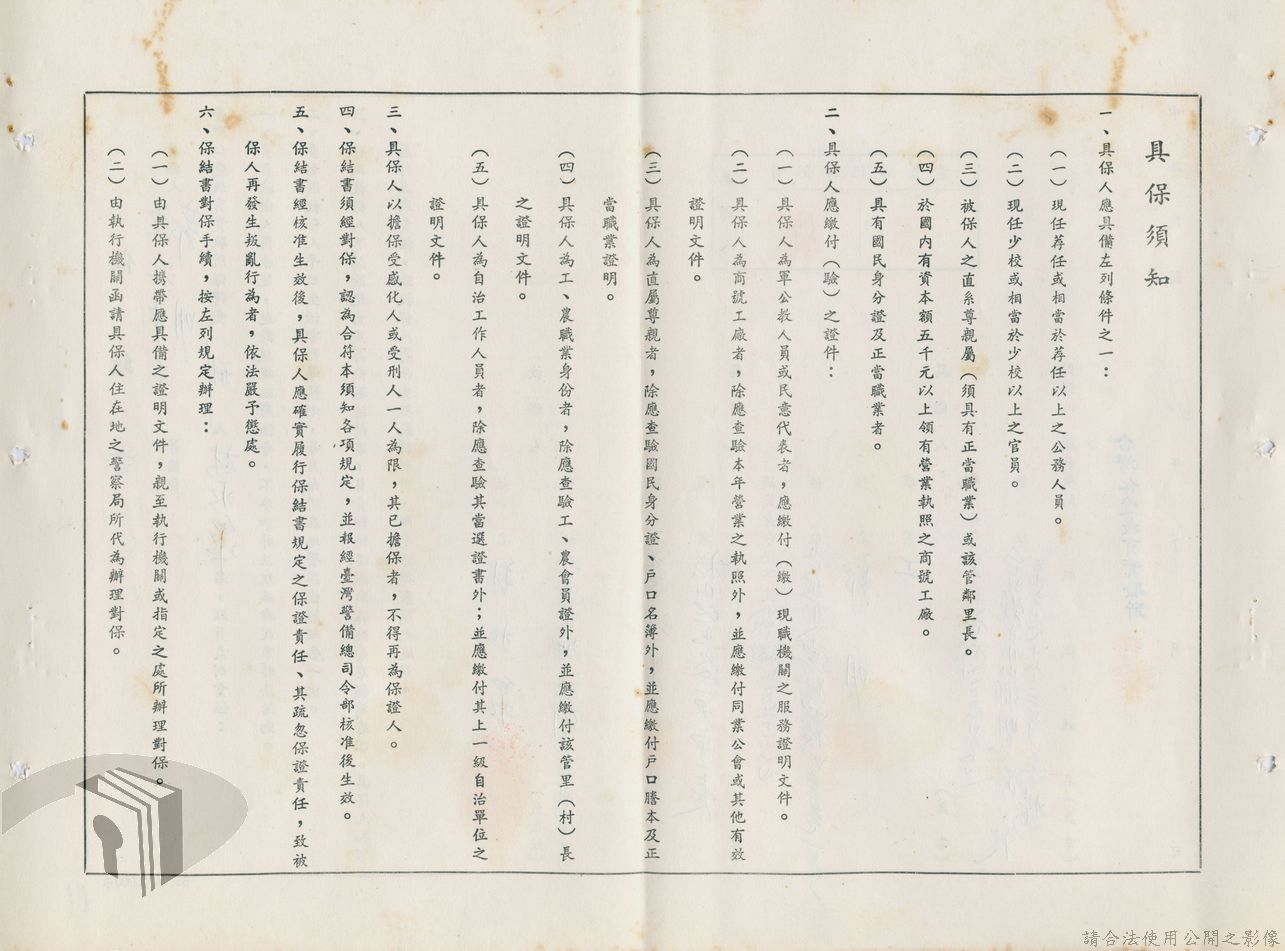 具保須知
一、具保人應具備左列條件之一：
（一）現任荐任或相當於荐任以上之公務人員。
（二）現任少校或相當於少校以上之官員。
（三）被保人之直系尊親屬（須具有正當職業）或該管鄰里長。
（四）於國内有資本額五千元以上領有營業執照之商號工廠。
（五）具有國民身分證及正當職業者。
二、具保人應繳付（驗）之證件：
（一）具保人為軍公教人員或民意代表者，應繳付（繳）現職機關之服務證明文件。
（二）具保人為商號工廠者，除應查驗本年營業之執照外，並應繳付同業公會或其他有效
證明文件。
（三）具保人為直屬尊親者，除應查驗國民身分證、戶口名簿外，並應繳付戶口謄本及正
當職業證明。
（四）具保人為工、農職業身份者，除應查驗工、農會員證外，並應繳付該管里（村）長
之證明文件。
（五）具保人為自治工作人員者，除應查驗其當選證書外；並應繳付其上一級自治單位之
證明文件。
三、具保人以擔保受感化人或受刑人一人為限，其已擔保者，不得再為保證人。
四、保結書須經對保，認為合符本須知各項規定，並報經臺灣警備總司令部核准後生效。
五、保結書經核准生效後，具保人應確實履行保結書規定之保證責任、其疏忽保證責任，致被
保人再發生叛亂行為者，依法嚴予懲處。
六、保結書對保手續，按左列規定辦理：
（一）由具保人携帶應具備之證明文件，親至執行機關或指定之處所辦理對保。
（二）由執行機關函請具保人住在地之警察局所代為辦理對保。
請合法使用公開之影像